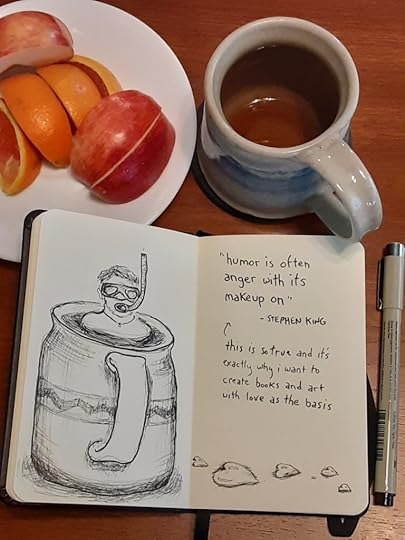 "humor is often
anger with its
makeup on"
- STEPHEN KING
this is so true and it's
exactly why i want to
create books and art
with love as the basis